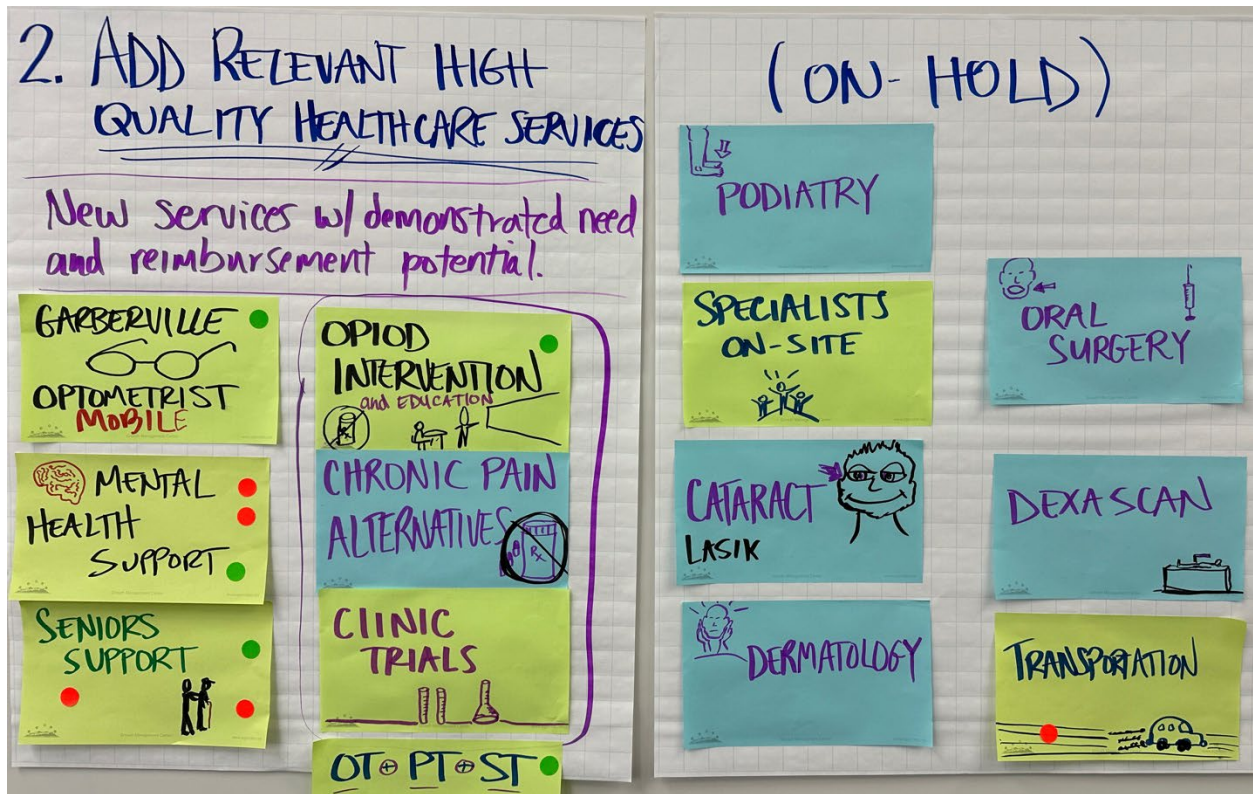 2. ADD RELEVANT HIGH
QUALITY HEALTHCARE SERVICES
New services w/ demonstrated need
and reimbursement potential.
GARBERVILLE
OPTOMETRIST
MOBILE
MENTAL
HEALTH
SUPPORT
SENIORS
SUPPORT
OPIOD
INTERVENTION
and EDUCATION
CHRONIC PAIN
ALTERNATIVES
Rx
CLINIC
TRIALS
OT + PT + ST
(ON-HOLD)
PODIATRY
SPECIALISTS
ON-SITE
CATARACT
LASIK
DERMATOLOGY
ORAL
SURGERY
DEXA SCAN
TRANSPORTATION